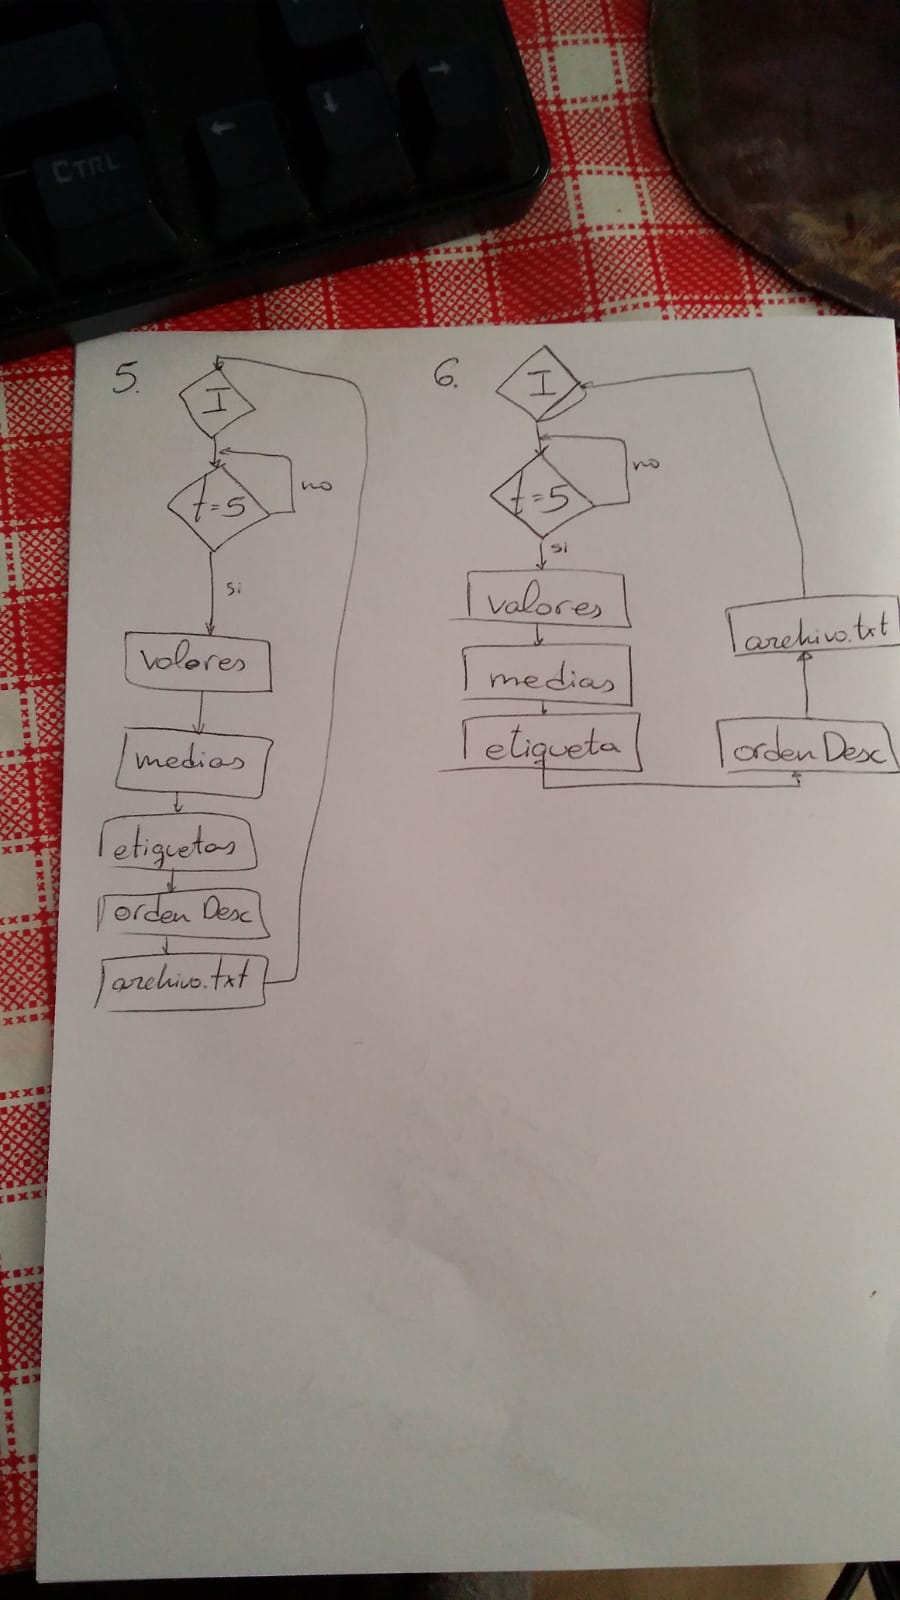 CTRL
5.
I
t=5
no
si
valores
medias
etiquetas
orden Desc
archivo.txt
6.
I
t=5
no
si
valores
medias
etiqueta
orden Desc
archivo.txt